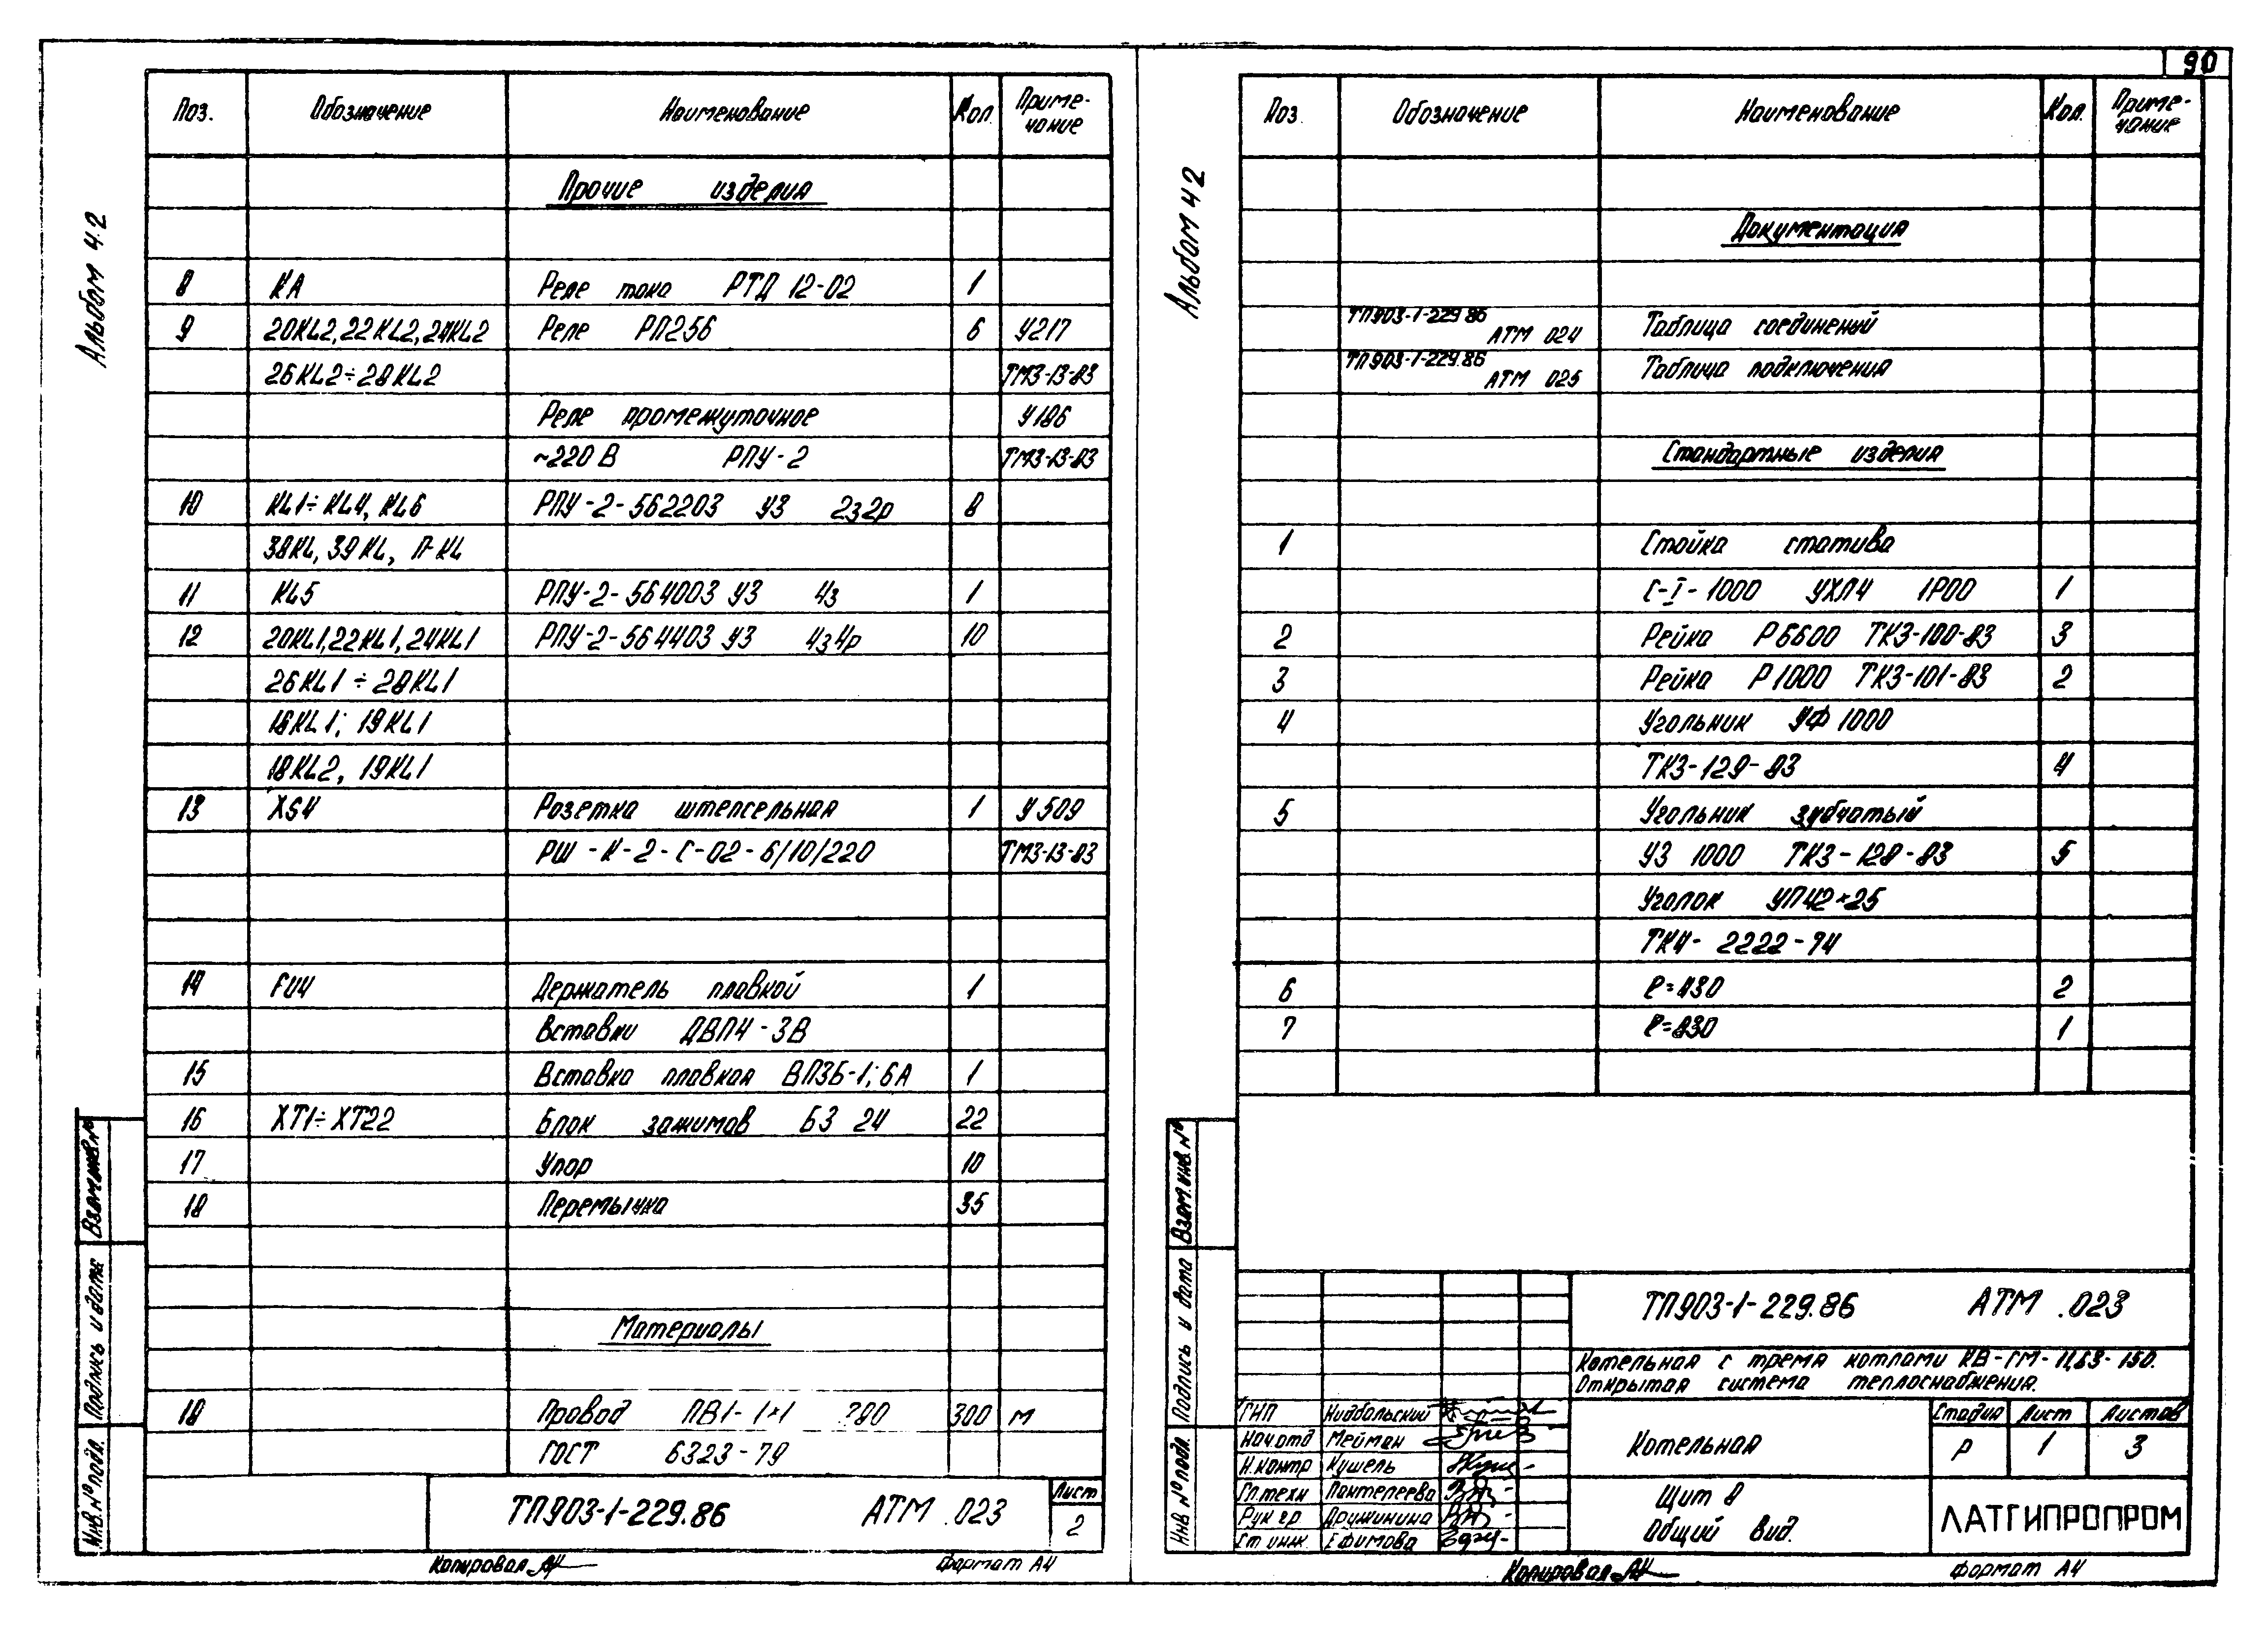 90
Альбом 4.2
Поз. Обозначение Наименование Кол. Приме-
чание
Прочие изделия
8 КА Реле тока РТД 12-02 1
9 20KL2, 22KL2, 24KL2 Реле РП256 6 У217
26KL2÷28KL2 ТМ3-13-83
Реле промежуточное У186
~220В РПУ-2 ТМ3-13-83
10 KL1÷KL4, KL6 РПУ-2-562203 У3 2з2р 8
38KL, 39KL, П-KL
11 KL5 РПУ-2-564003 У3 4з 1
12 20KL1, 22KL1, 24KL1 РПУ-2-564403 У3 4з4р 10
26KL1÷28KL1
18KL1; 19KL1
18KL2, 19KL1
13 XS4 Розетка штепсельная 1 У509
РШ-К-2-С-02-6/10/220 ТМ3-13-83
14 FU4 Держатель плавкой 1
вставки ДВП4-3В
15 Вставка плавкая ВП3Б-1; 6А 1
16 XT1÷XT22 Блок зажимов БЗ 24 22
17 Упор 10
18 Перемычка 35
Материалы
18 Провод ПВ1-1×1 380 300 м
ГОСТ 6323-79
ТП903-1-229.86 АТМ .023 Лист
2
Взам.инв.№
Подпись и дата
Инв.№ подл.
Копировал
Формат А4
Альбом 4.2
Поз. Обозначение Наименование Кол. Приме-
чание
Документация
ТП903-1-229.86
АТМ 024 Таблица соединений
ТП903-1-229.86
АТМ 025 Таблица подключения
Стандартные изделия
1 Стойка статива
С-I-1000 УХЛ4 IP00 1
2 Рейка Р6600 ТК3-100-83 3
3 Рейка Р1000 ТК3-101-83 2
4 Угольник УФ 1000
ТК3-129-83 4
5 Угольник зубчатый
УЗ 1000 ТК3-128-83 5
Уголок УП42×25
ТК4-2222-74
6 ℓ=830 2
7 ℓ=830 1
ТП903-1-229.86 АТМ .023
Котельная с тремя котлами КВ-ГМ-11,63-150.
Открытая система теплоснабжения.
ГИП Нидбальский
Нач.отд Мейман
Н.контр Кушель
Гл.техн Пантелеева
Рук гр Дружинина
Ст инж. Ефимова
Котельная
Стадия Лист Листов
Р 1 3
Щит 8
Общий вид.
ЛАТГИПРОПРОМ
Взам.инв.№
Подпись и дата
Инв №подл.
Копировал
Формат А4